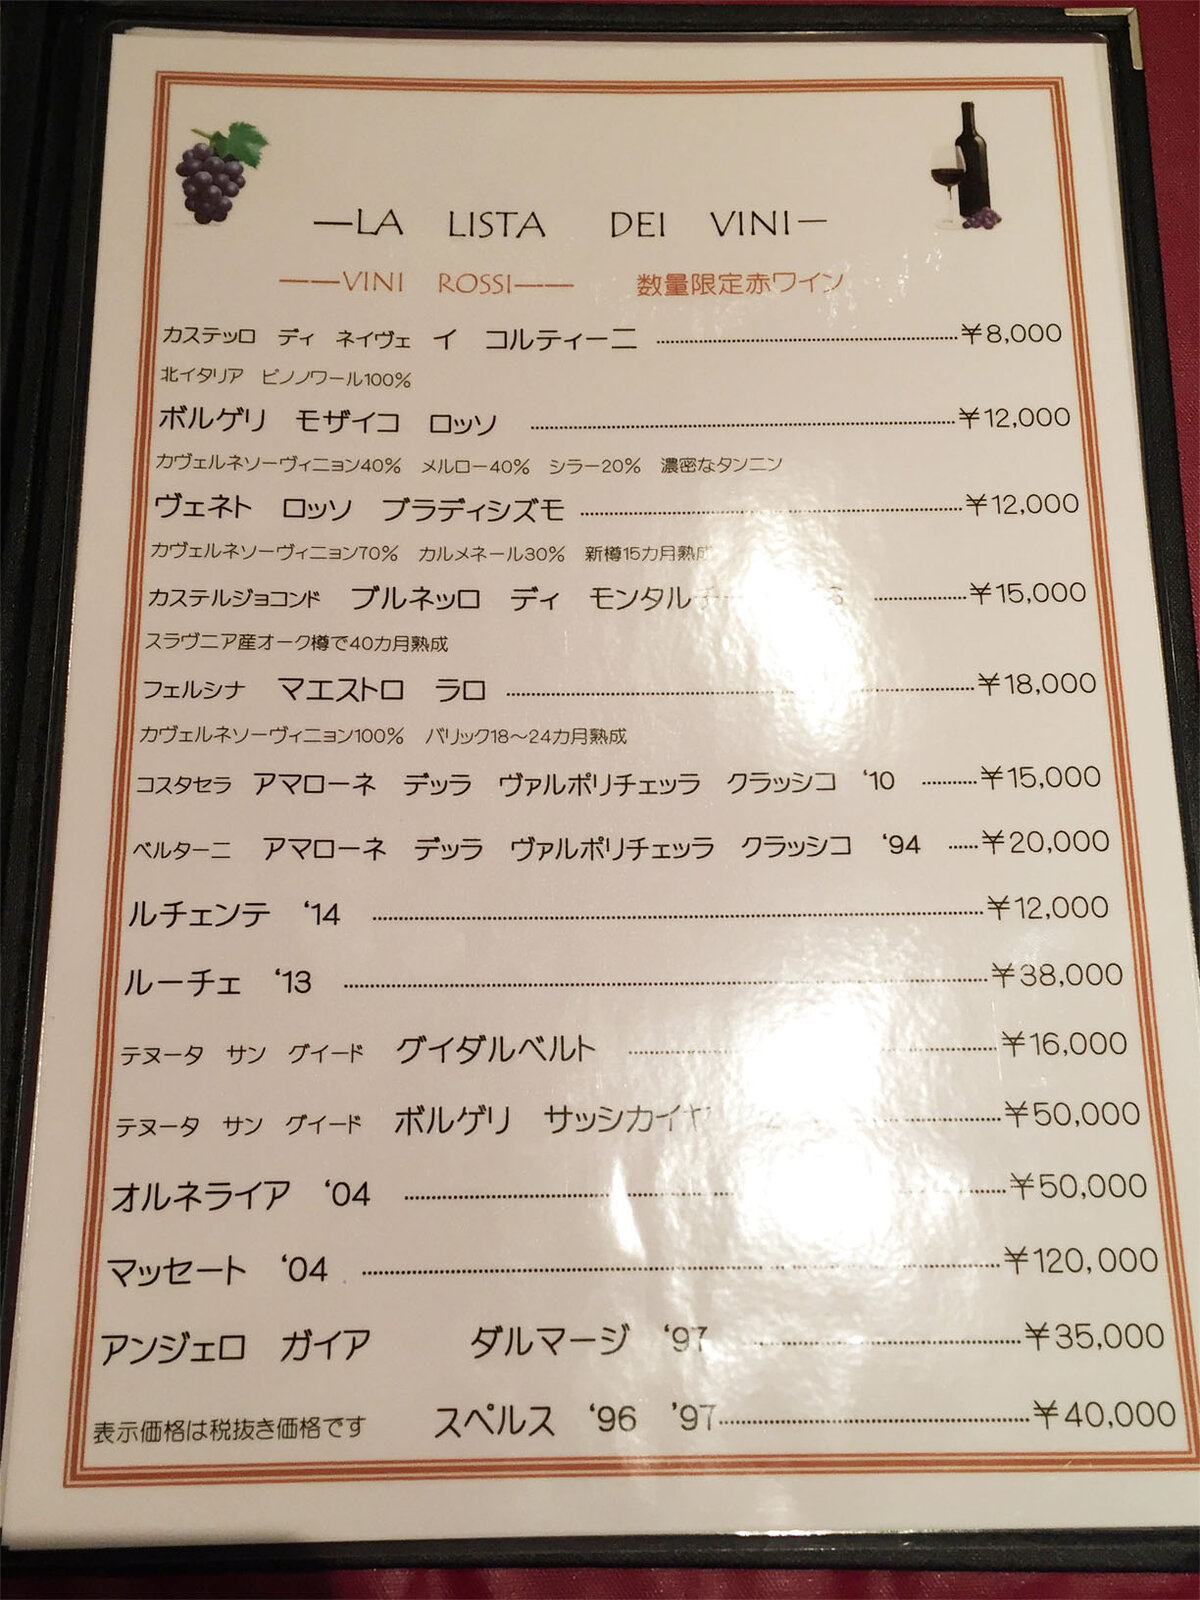 —LA LISTA DEI VINI—
——VINI ROSSI—— 数量限定赤ワイン
カステッロ ディ ネイヴェ イ コルティーニ ¥8,000
北イタリア ピノノワール100%
ボルゲリ モザイコ ロッソ ¥12,000
カヴェルネソーヴィニョン40% メルロー40% シラー20% 濃密なタンニン
ヴェネト ロッソ ブラディシズモ ¥12,000
カヴェルネソーヴィニョン70% カルメネール30% 新樽15カ月熟成
カステルジョコンド ブルネッロ ディ ¥15,000
スラヴニア産オーク樽で40カ月熟成
フェルシナ マエストロ ラロ ¥18,000
カヴェルネソーヴィニョン100% バリック18〜24カ月熟成
コスタセラ アマローネ デッラ ヴァルポリチェッラ クラッシコ ‘10 ¥15,000
ベルターニ アマローネ デッラ ヴァルポリチェッラ クラッシコ ‘94 ¥20,000
ルチェンテ ‘14 ¥12,000
ルーチェ ‘13 ¥38,000
テヌータ サン グイード グイダルベルト ¥16,000
テヌータ サン グイード ボルゲリ サッシカイヤ ¥50,000
オルネライア ‘04 ¥50,000
マッセート ‘04 ¥120,000
アンジェロ ガイア ダルマージ ‘97 ¥35,000
表示価格は税抜き価格です スペルス ‘96 ’97 ¥40,000